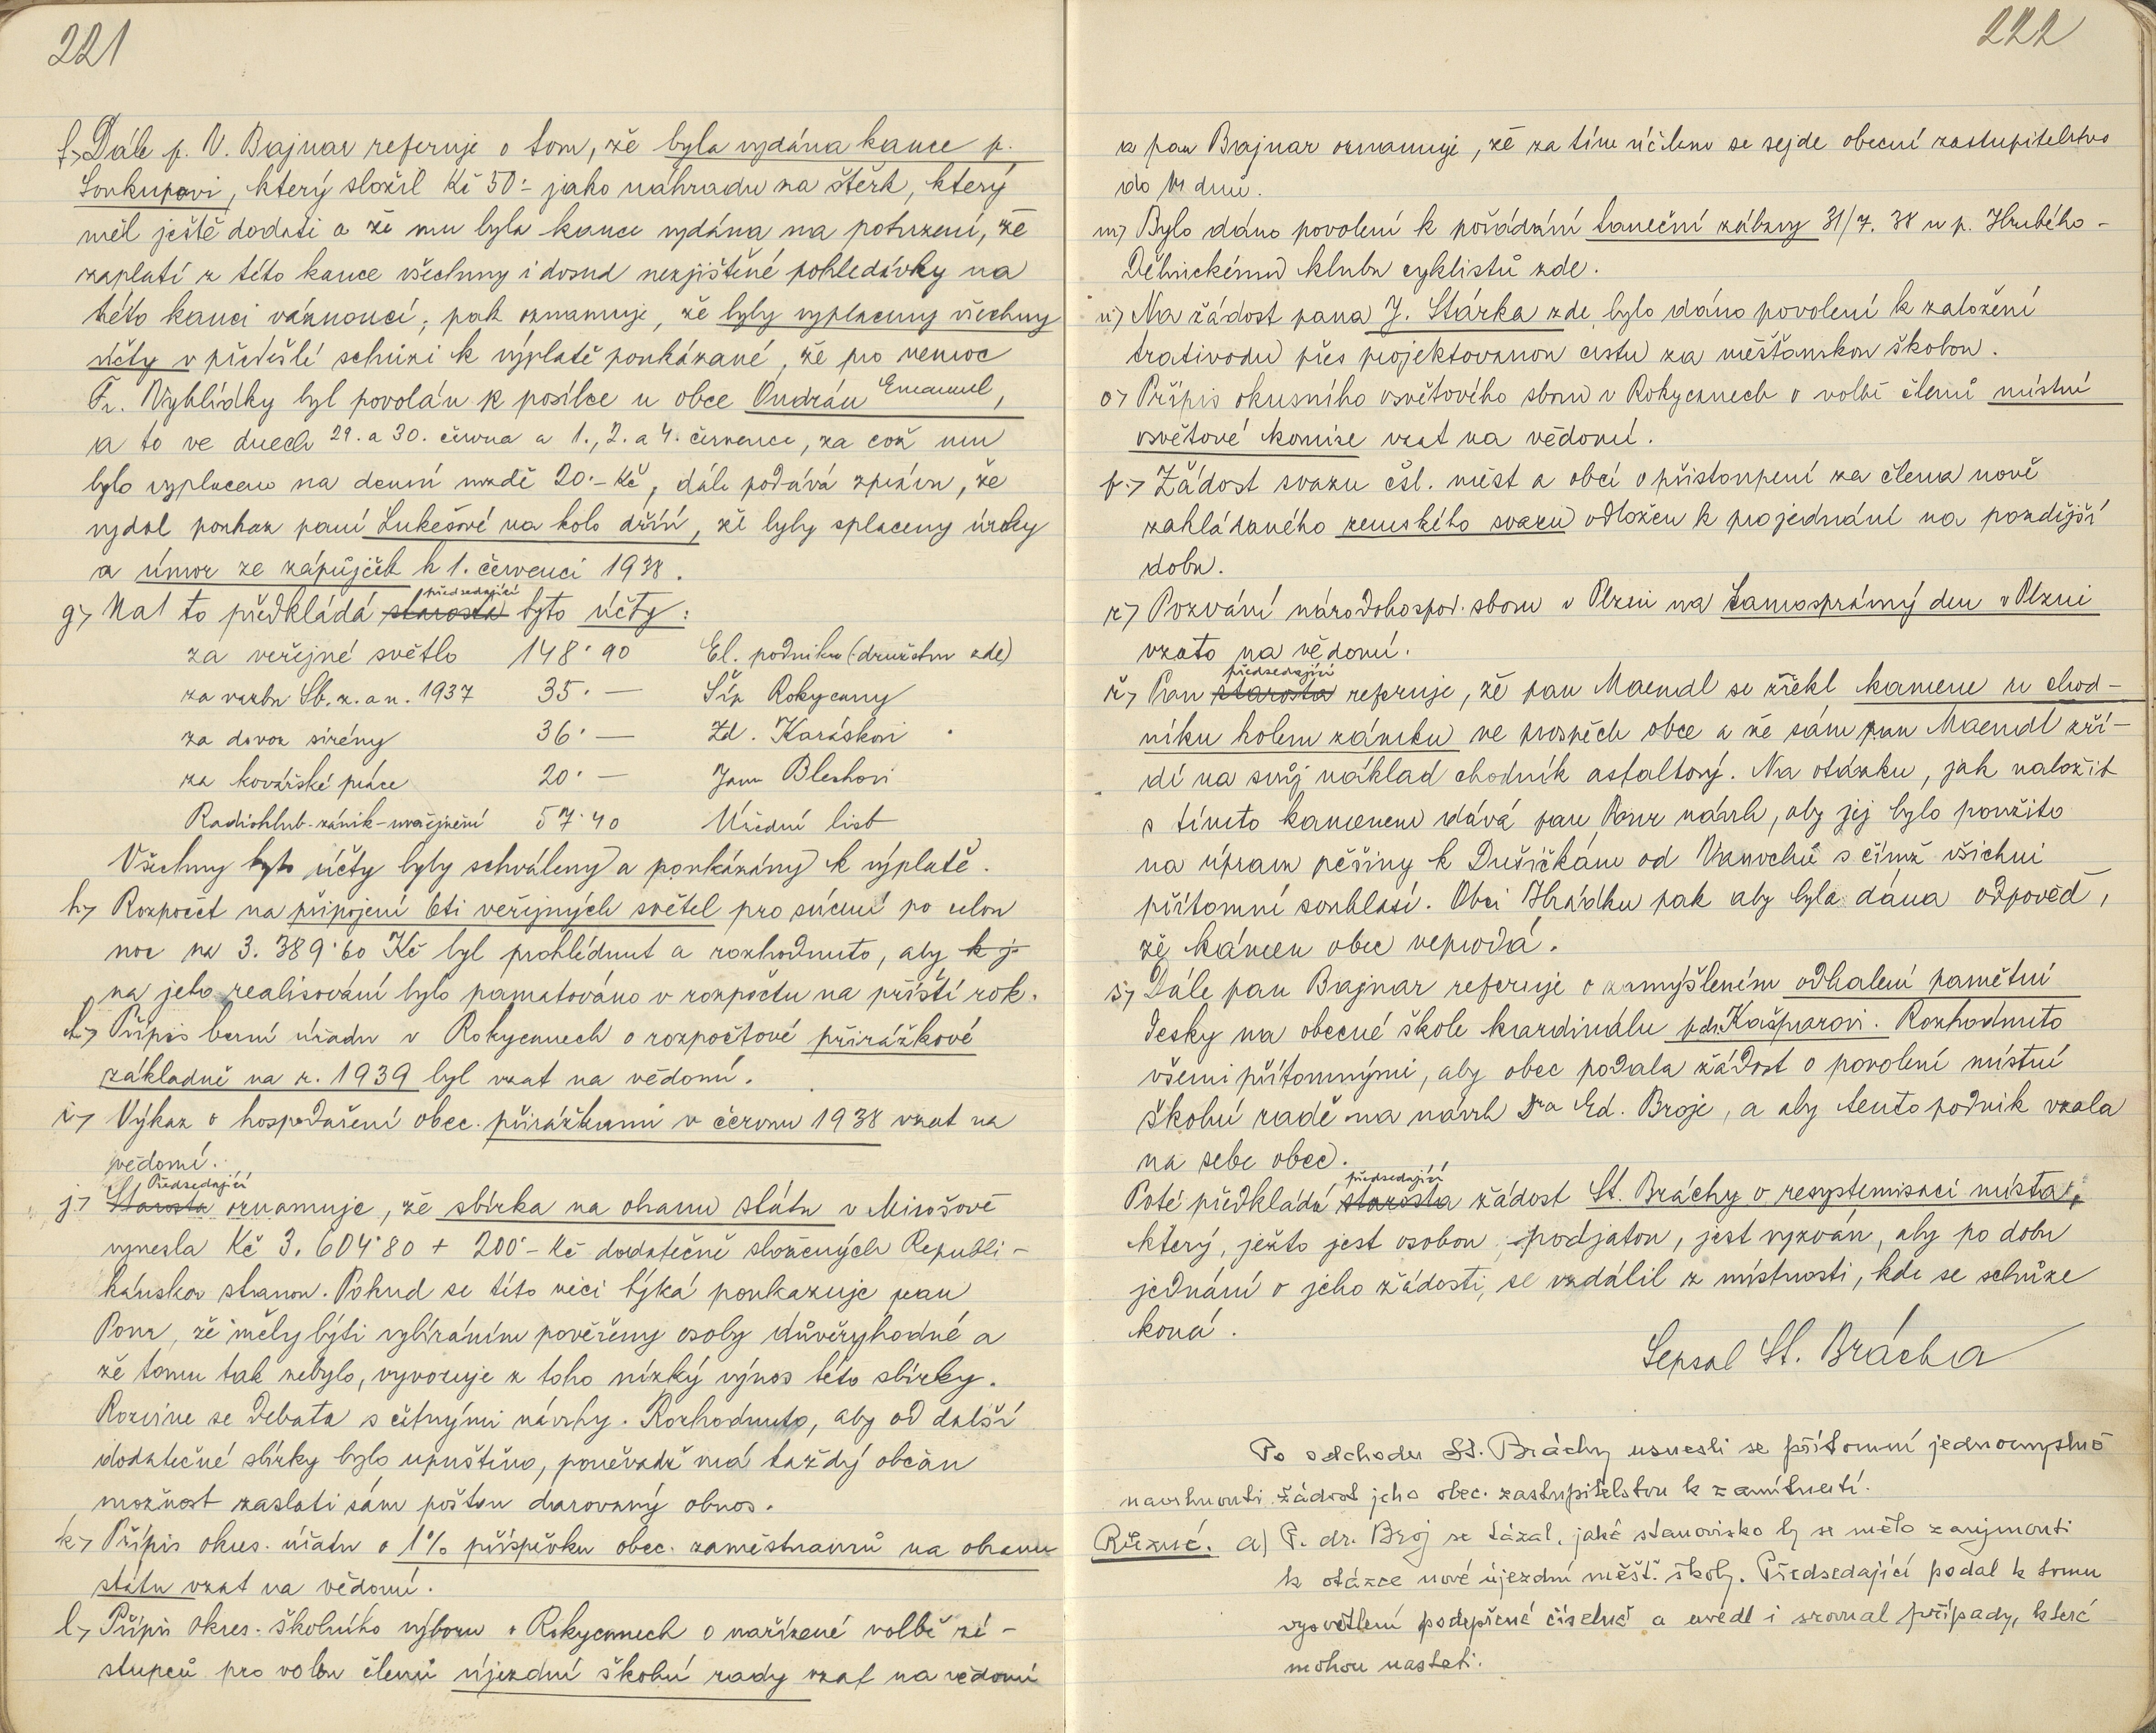 221
f.) Dále p. V. Bajnar referuje o tom, že byla vydána kauce p.
Soukupovi, který složil Kč 50·- jako náhradu na štěrk, který
měl ještě dodati a že mu byla kauce vydána na potvrzení, že
zaplatí z této kauce všechny i dosud nezjištěné pohledávky na
této kauci váznoucí; pak oznamuje, že byly vyplaceny všechny
účty v předešlé schůzi k výplatě poukázané, že pro nemoc
Fr. Vyhlídky byl povolán k posílce u obce Ondrán Emanuel,
a to ve dnech 29. a 30. června a 1., 2. a 4. července, za což mu
bylo vyplaceno na denní mzdě 20·- Kč, dále podává zprávu, že
vydal poukaz paní Lukešové na kolo dříní, že byly splaceny úroky
a úmor ze zápůjček k 1. červenci 1938.
předsedající
g.) Nato předkládá starosta tyto účty:
za veřejné světlo 148·90 El. podniku (družstvu zde)
za vazbu Sb. z. a n. 1937 35·— Šíp Rokycany
za dovoz sirény 36·— Zd. Karáskovi
za kovářské práce 20·— Janu Bleshovi
Radioklub-zánik-uveřejnění 57·40 Úřední list
Všechny tyto účty byly schváleny a poukázány k výplatě.
h.) Rozpočet na připojení 6ti veřejných světel pro svícení po celou
noc na 3.389·60 Kč byl prohlédnut a rozhodnuto, aby k j
na jeho realisování bylo pamatováno v rozpočtu na příští rok.
ch.) Přípis berní úřadu v Rokycanech o rozpočtové přirážkové
základně na r. 1939 byl vzat na vědomí.
i.) Výkaz o hospodaření obec. přirážkami v červnu 1938 vzat na
vědomí.
Předsedající
j.) Starosta oznamuje, že sbírka na obranu státu v Mirošově
vynesla Kč 3.604·80 + 200·- Kč dodatečně složených Republi-
kánskou stranou. Pokud se této věci týká poukazuje pan
Ponr, že měly býti vybíráním pověřeny osoby důvěryhodné a
že tomu tak nebylo, vyvozuje z toho nízký výnos této sbírky.
Rozvine se debata s četnými návrhy. Rozhodnuto, aby od další
dodatečné sbírky bylo upuštěno, poněvadž má každý občan
možnost zaslati sám poštou darovaný obnos.
k.) Přípis okres. úřadu o 1% příspěvku obec. zaměstnanců na obranu
státu vzat na vědomí.
l.) Přípis okres. školního výboru v Rokycanech o nařízené volbě zá-
stupců pro volbu členů újezdní školní rady vzat na vědomí
222
a pan Bajnar oznamuje, že za tím účelem se sejde obecní zastupitelstvo
do 14 dnů.
m) Bylo dáno povolení k pořádání taneční zábavy 31/7. 38 u p. Hrubého-
Dělnickému klubu cyklistů zde.
n) Na žádost pana J. Stárka zde, bylo dáno povolení k založení
trativodu přes projektovanou cestu za měšťanskou školou.
o) Přípis okresního osvětového sboru v Rokycanech o volbě členů místní
osvětové komise vzat na vědomí.
p.) Žádost svazu čsl. měst a obcí o přistoupení za člena nově
zakládaného zemského svazu odložen k projednání na pozdější
dobu.
r) Pozvání národohospod. sboru v Plzni na Samosprávný den v Plzni
vzato na vědomí.
předsedající
ř.) Pan starosta referuje, že pan Maendl se zřekl kamene u chod-
níku kolem zámku ve prospěch obce a že sám pan Maendl zří-
dí na svůj náklad chodník asfaltový. Na otázku, jak naložit
s tímto kamenem dává pan Ponr návrh, aby jej bylo použito
na úpravu pěšiny k Dušičkám od Vanochů s čímž všichni
přítomní souhlasí. Obci Hrádku pak aby byla dána odpověď,
že kámen obec neprodá.
s.) Dále pan Bajnar referuje o zamýšleném odhalení pamětní
desky na obecné škole kardinálu p. dr. Kašparovi. Rozhodnuto
všemi přítomnými, aby obec podala žádost o povolení místní
školní radě na návrh Dra Ed. Broje, a aby tento podnik vzala
na sebe obec.
předsedající
Poté předkládá starosta žádost St. Bráchy o resystemisaci místa,
který, ježto jest osobou podjatou, jest vyzván, aby po dobu
jednání o jeho žádosti, se vzdálil z místnosti, kde se schůze
koná.
Sepsal St. Brácha
Po odchodu St. Bráchy usnesli se přítomní jednomyslně
navrhnouti žádost jeho obec. zastupitelstvu k zamítnutí.
Různé. a) P. dr. Broj se tázal, jaké stanovisko by se mělo zaujmouti
k otázce nové újezdní měšť. školy. Předsedající podal k tomu
vysvětlení podepřené číselně a uvedl i srovnal případy, které
mohou nastati.